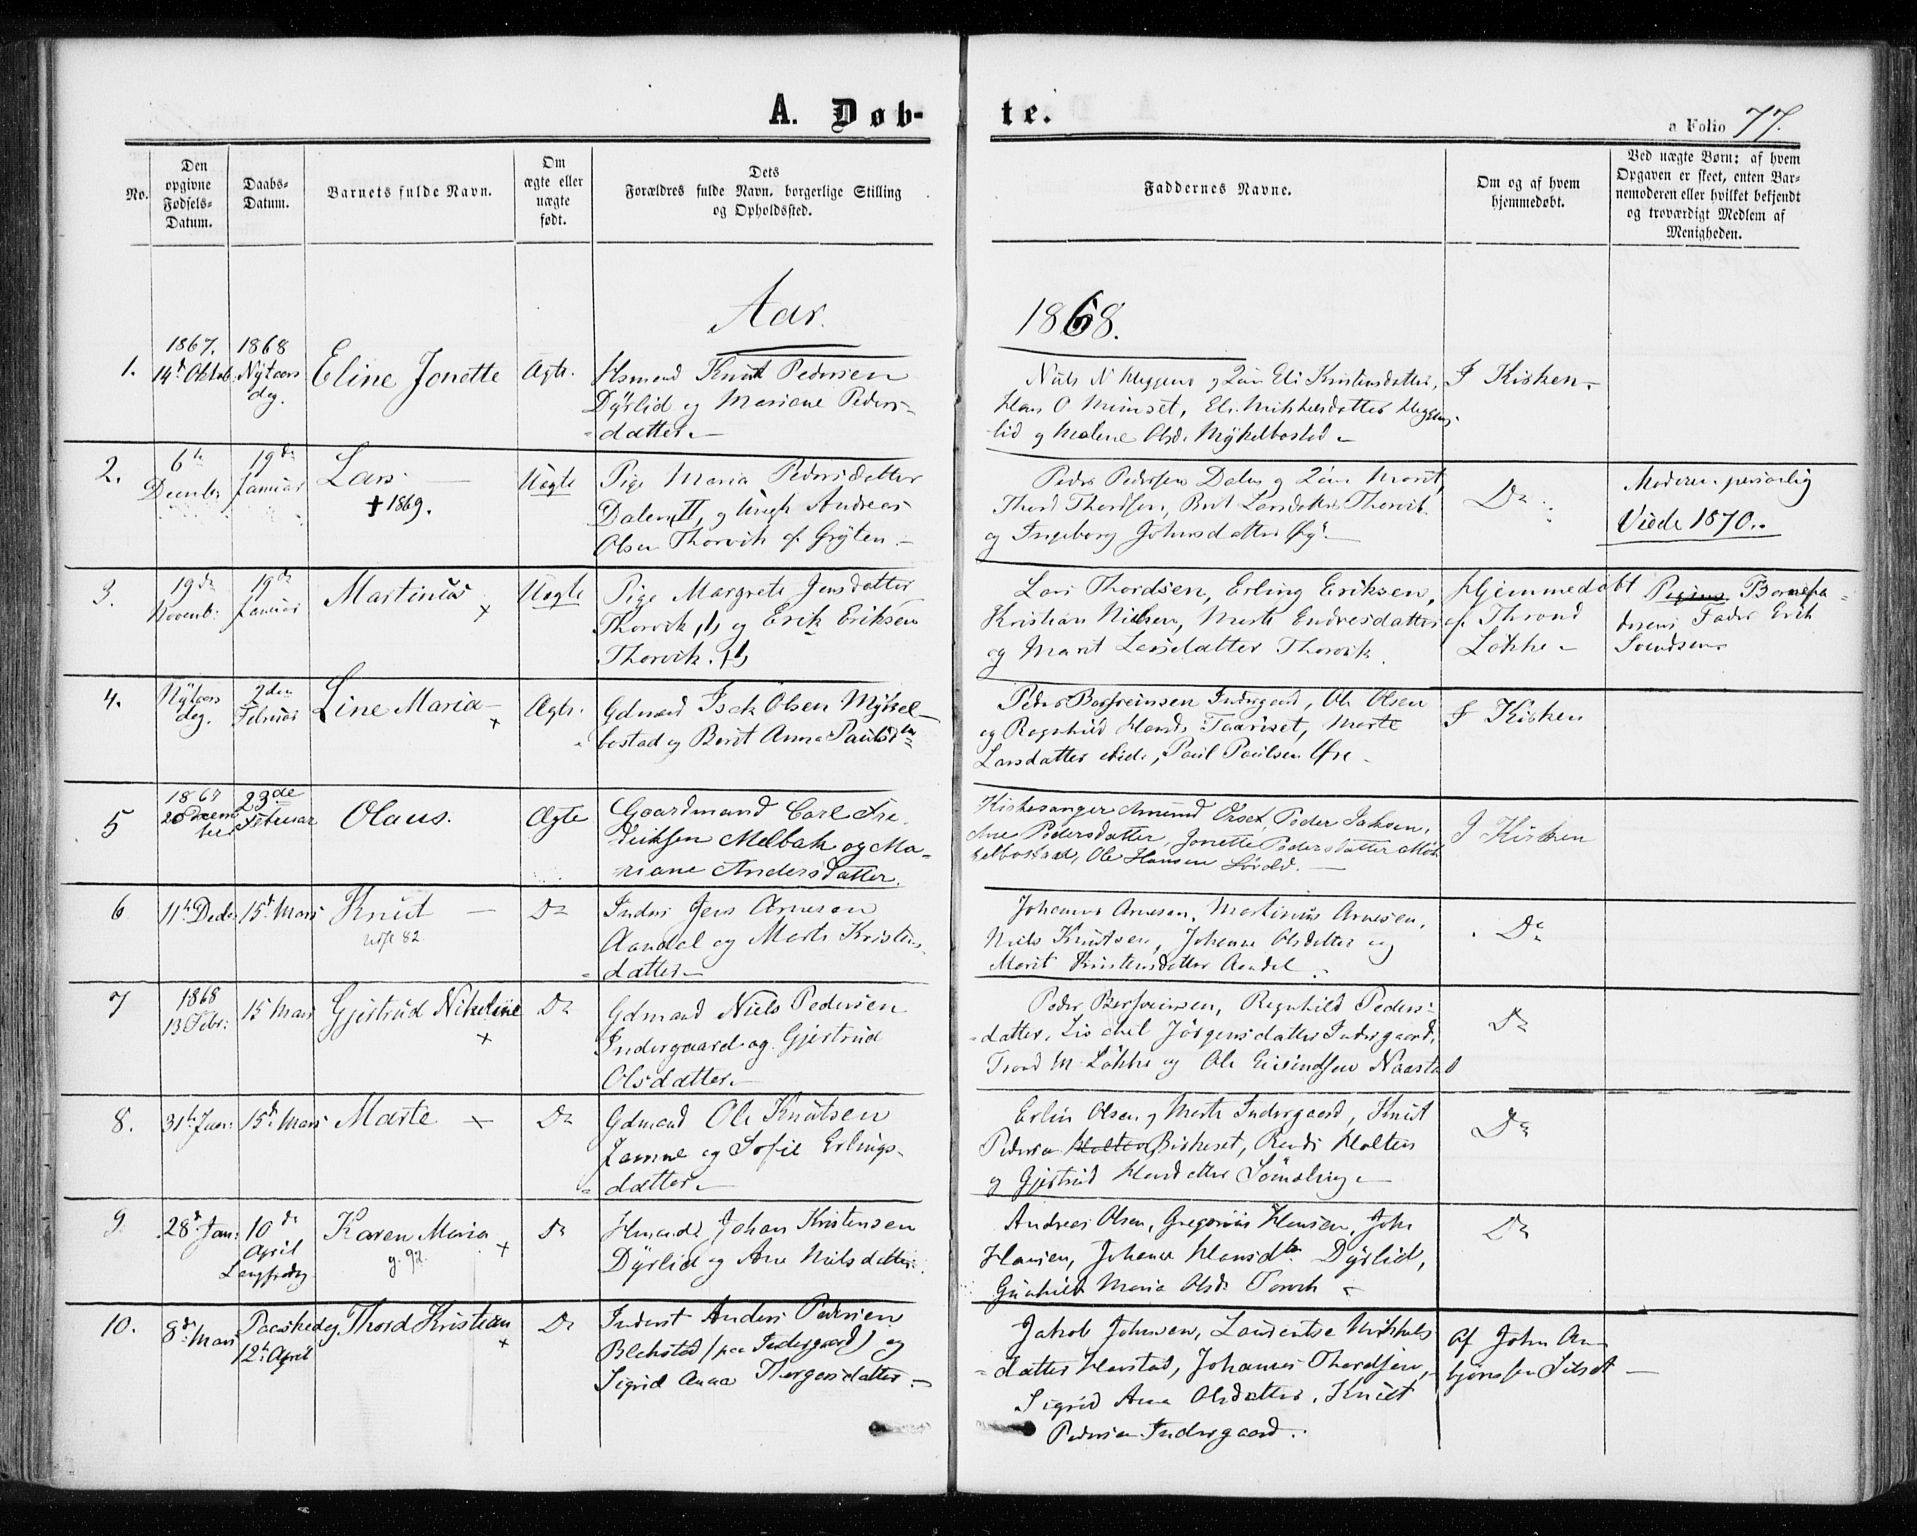 A. Døb-
te.
a Folio 77.
No.
Den opgivne Fødsels-Datum.
Daabs-Datum.
Barnets fulde Navn.
Om ægte eller uægte født.
Dets
Forældres fulde Navn, borgerlige Stilling
og Opholdssted.
Faddernes Navne.
Om og af hvem
hjemmedøbt.
Ved uægte Børn: af hvem
Opgaven er skeet, enten Bar-
nemoderen eller hvilket bekjendt
og troværdigt Medlem af
Menigheden.
Aar.
1868.
1.
1867.
14d Oktob.
1868
Nytaars
dag.
Eline Jonette
Ægte.
Hsmand Knut Pedersen
Dyrlid og Mariane Peders-
datter
Niels N Heggem og Eli Kristensdatter,
Hans O Mimset, Eli Mikkelsdatter Heggem-
lid og Malene Olsd. Myklebostad
I Kirken
2.
6te
Decmber
19de
Januar
Lars
† 1869.
Uægte
Pige Maria Pedersdatter
Dalen II, og Ungk Andreas
Olsen Thorvik af Gryten
Peder Pedersen Dalen og Marit,
Thord Thordsen, Brit Larsdatter Thorvik
og Ingeborg Johnsdatter
Do
Moderen personlig
Viede 1870.
3.
19de
Novemb:
19de
Januar
Martinus ×
Uægte
Pige Margrete Jensdatter
Thorvik, og Erik Eriksen
Thorvik.
Lars Thordsen, Erling Eriksen,
Kristian Nielsen, Marte Endresdatter
og Marit Larsdatter Thorvik
Hjemmedøbt
af Thrond
Løkke
Barnefa-
derens Fader Erik
Svendsen
4.
Nytaars
dag.
2den
Februar
Line Maria ×
Ægte.
Gdmand Isak Olsen Mykle-
bostad og Berit Anna Paulsdtr
Peder Bersveinsen Indergaard, Ole Olsen
og Ragnhild Hansd. Taariset, Marte
Larsdatter, Paul Paulsen Øre
I Kirken
5
1867
20 Decem
ber
23de
Februar
Olaus.
Ægte
Gaardmand Carl Fre-
driksen Melbak og Ma-
riane Andersdatter.
Kirkesanger Amund Orset, Peder Jaksen,
Ane Pedersdatter, Jonette Pedersdatter Myk
lebostad, Ole Hansen
I Kirken
6
11te Decb
15d Mars
Knut
Do
Inders Jens Arnesen
Aandal og Marte Kristens
datter
Johannes Arnesen, Martinus Arnesen,
Niels Knutsen, Johanne Olsdatter og
Marit Kristensdatter Aandal
Do
7
1868
13 Febr:
15 Mars
Gjertrud Nikoline ×
Do
Gdmand Niels Pedersen
Indergaard og Gjertrud
Olsdatter
Peder Bersveinsen, Ragnhild Peders-
datter, Jørgensdatter Indergaard,
Trond M. Løkke og Ole Eivindsen Naastad
Do
8.
31te Jan:
15d Mars
Marte ×
Do
Gdmand Ole Knutsen
Jamne og Sofie Erlings-
datter
Erlin Olsen og Marte Indergaard, Knut
Pedersen Holten Birkeset, Randi Holten
og Gjertrud Hansdatter Sømoling
Do
9.
28d Jan:
10de
April
Langfredag
Karen Maria ×
g. 92.
Do
Hmand Johan Kristensen
Dyrlid og Ane Nielsdatter.
Andreas Olsen, Gregorius Hansen, John
Hansen, Johanna Hansdtr Dyrlid,
Gunhild Maria Olsdr Torvik
Do
10.
8de Mars
Paaskedag
12te April
Thord Kristian ×
Do
Inderst Anders Pedersen
Blekstad (paa Indergaard) og
Sigrid Anna Thorgersdatter
Jakob Johnsen, Laurentse Mikkels
datter Harstad, Johannes Thordsen,
Sigrid Ana Olsdatter, Knut
Pedersen Indergaard.
af John An-
bjørnsen Sitset